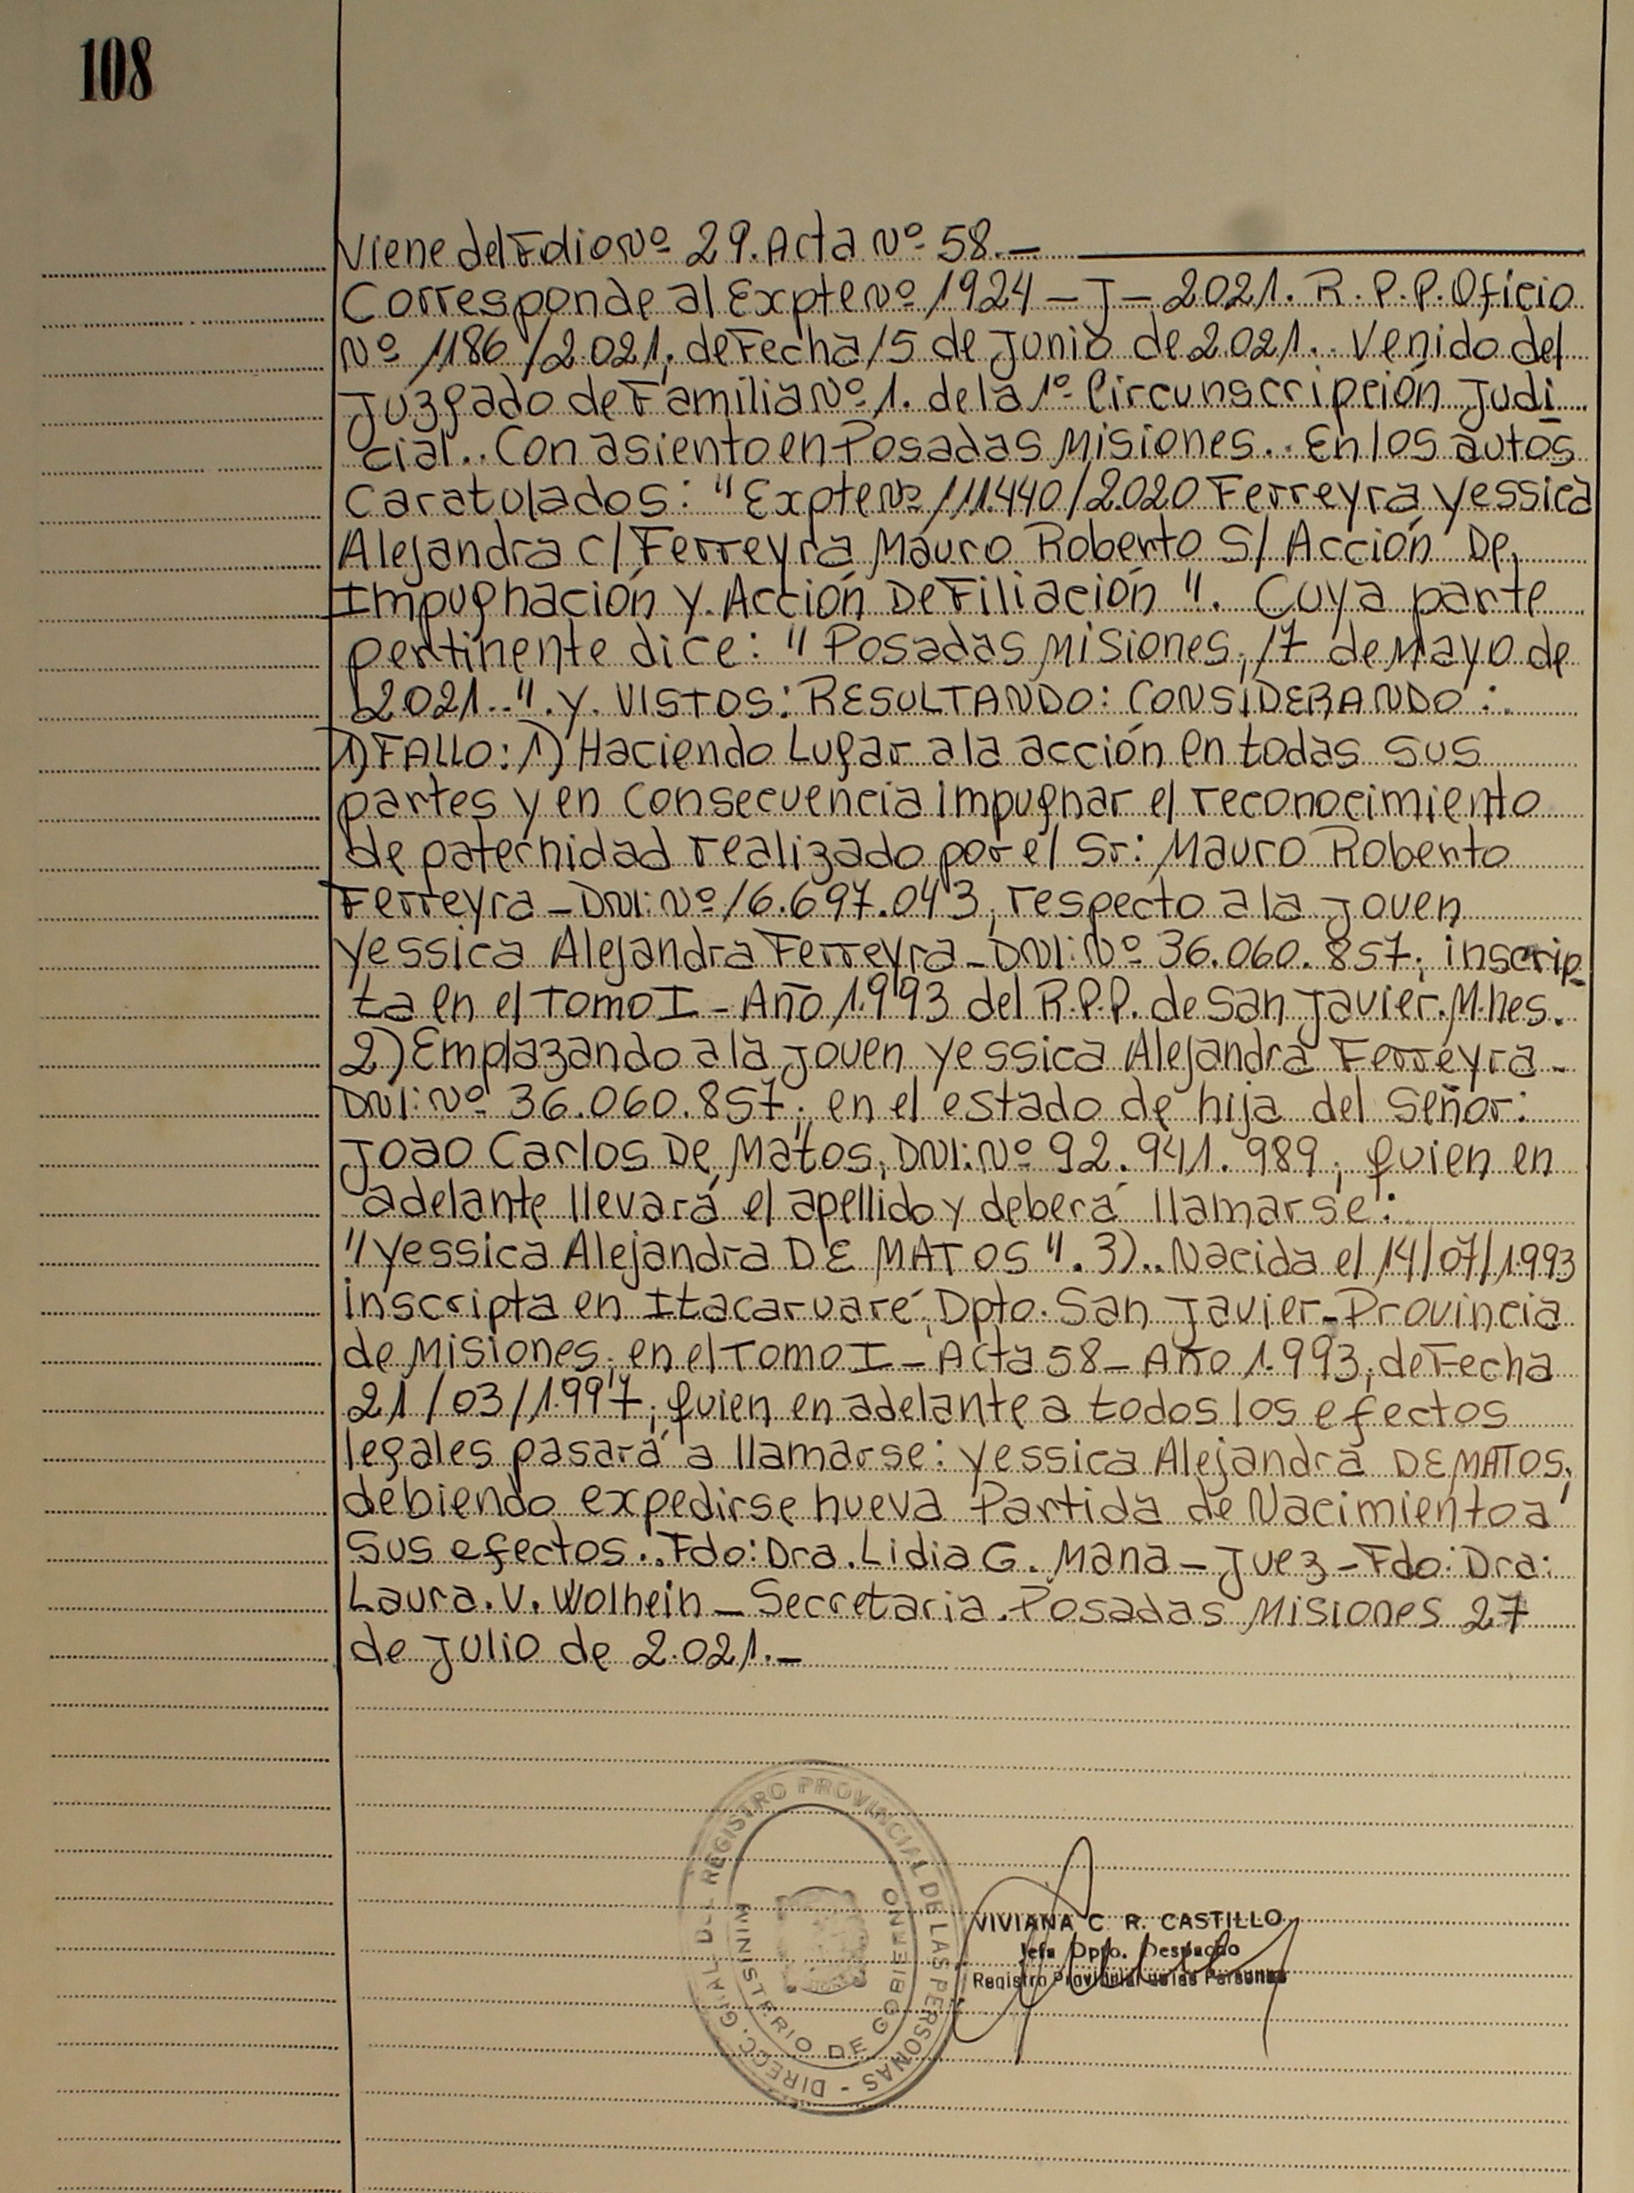 108
Viene del Folio Nº 29. Acta Nº 58.—
Corresponde al Expte Nº 1924 – J – 2021. R. P. P. Oficio
Nº 1186/2.021, de Fecha 15 de Junio de 2.021.. Venido del
Juzgado de Familia Nº 1. de la 1º Circunscripción Judi
cial.. Con asiento en Posadas Misiones.. En los autos
Caratulados: "Expte Nº 111.440/2.020 Ferreyra Yessica
Alejandra C/ Ferreyra Mauro Roberto S/ Acción De
Impugnación y. Acción De Filiación". Cuya parte
pertinente dice: "Posadas Misiones, 17 de Mayo de
2021..". Y. VISTOS: RESULTANDO: CONSIDERANDO:
1) FALLO: 1) Haciendo Lugar a la acción en todas sus
partes y en Consecuencia impugnar el reconocimiento
de paternidad realizado por el Sr: Mauro Roberto
Ferreyra – DNI: Nº 16.697.043, respecto a la Joven
Yessica Alejandra Ferreyra – DNI: Nº 36.060.857, inscrip
ta en el Tomo I – Año 1.993 del R.P.P. de San Javier. M.nes.
2) Emplazando a la Joven Yessica Alejandra Ferreyra –
DNI: Nº 36.060.857, en el estado de hija del Señor:
Joao Carlos De Matos, DNI: Nº 92.941.989, quien en
adelante llevará el apellido y deberá llamarse:
"Yessica Alejandra DE MATOS". 3).. Nacida el 14/07/1.993
inscripta en Itacaruaré, Dpto. San Javier – Provincia
de Misiones, en el Tomo I – Acta 58 – Año 1.993, de Fecha
21/03/1.997, quien en adelante a todos los efectos
legales pasará a llamarse: Yessica Alejandra DE MATOS,
debiendo expedirse nueva Partida de Nacimiento a
Sus efectos.. Fdo: Dra. Lidia G. Mana – Juez – Fdo: Dra:
Laura. V. Wolhein – Secretaria. Posadas Misiones 27
de Julio de 2.021.–
DIRECC. GRAL. DEL REGISTRO PROVINCIAL DE LAS PERSONAS -
MINISTERIO DE GOBIERNO
VIVIANA C. R. CASTILLO
Jefa Dpto. Despacho
Registro Provincial de las Personas